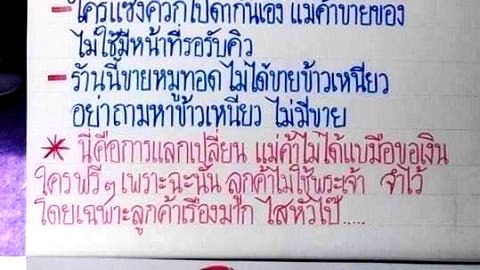 - ใครแซงคิวก็ไปด่ากันเอง แม่ค้าขายของ
ไม่ใช่มีหน้าที่รอรับคิว
- ร้านนี้ขายหมูทอด ไม่ได้ขายข้าวเหนียว
อย่าถามหาข้าวเหนียว ไม่มีขาย
* นี่คือการแลกเปลี่ยน แม่ค้าไม่ได้แบมือขอเงิน
ใครฟรีๆ เพราะฉะนั้น ลูกค้าไม่ใช่พระเจ้า จำไว้
โดยเฉพาะลูกค้าเรื่องมาก ไสหัวไป๊.....